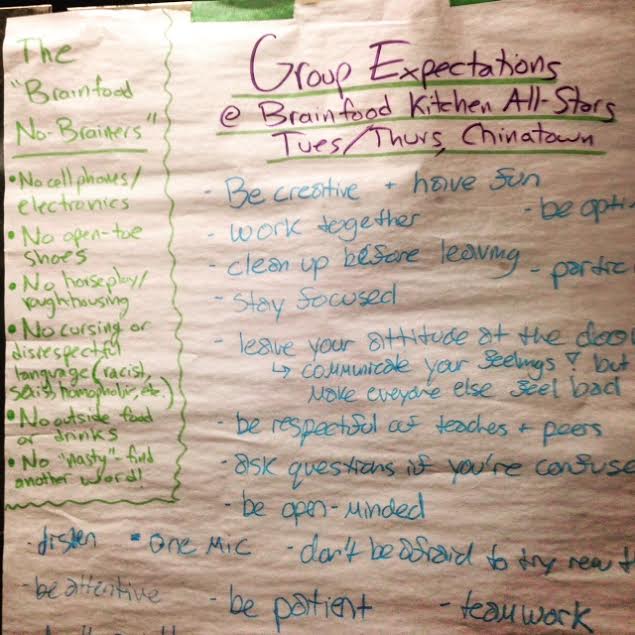 The
"Brainfood
No-Brainers"
• No cell phones/
electronics
• No open-toe
shoes
• No horseplay/
roughhousing
• No cursing or
disrespectful
language (racist,
sexist, homophobic, etc.)
• No outside food
or drinks
• No "nasty" - find
another word!
Group Expectations
@ Brainfood Kitchen All-Stars
Tues/Thurs, Chinatown
- Be creative + have fun
- be opti
- work together
- clean up before leaving
- partic
- stay focused
- leave your attitude at the door
↳ communicate your feelings! but
make everyone else feel bad
- be respectful of teachers + peers
- ask questions if you're confuse
- be open-minded
- listen - one mic - don't be afraid to try new t
- be attentive - be patient - teamwork